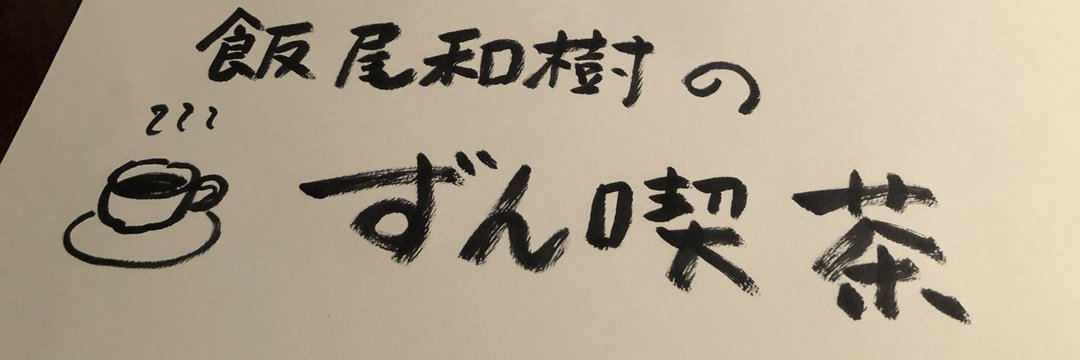 飯尾和樹の
ずん喫茶